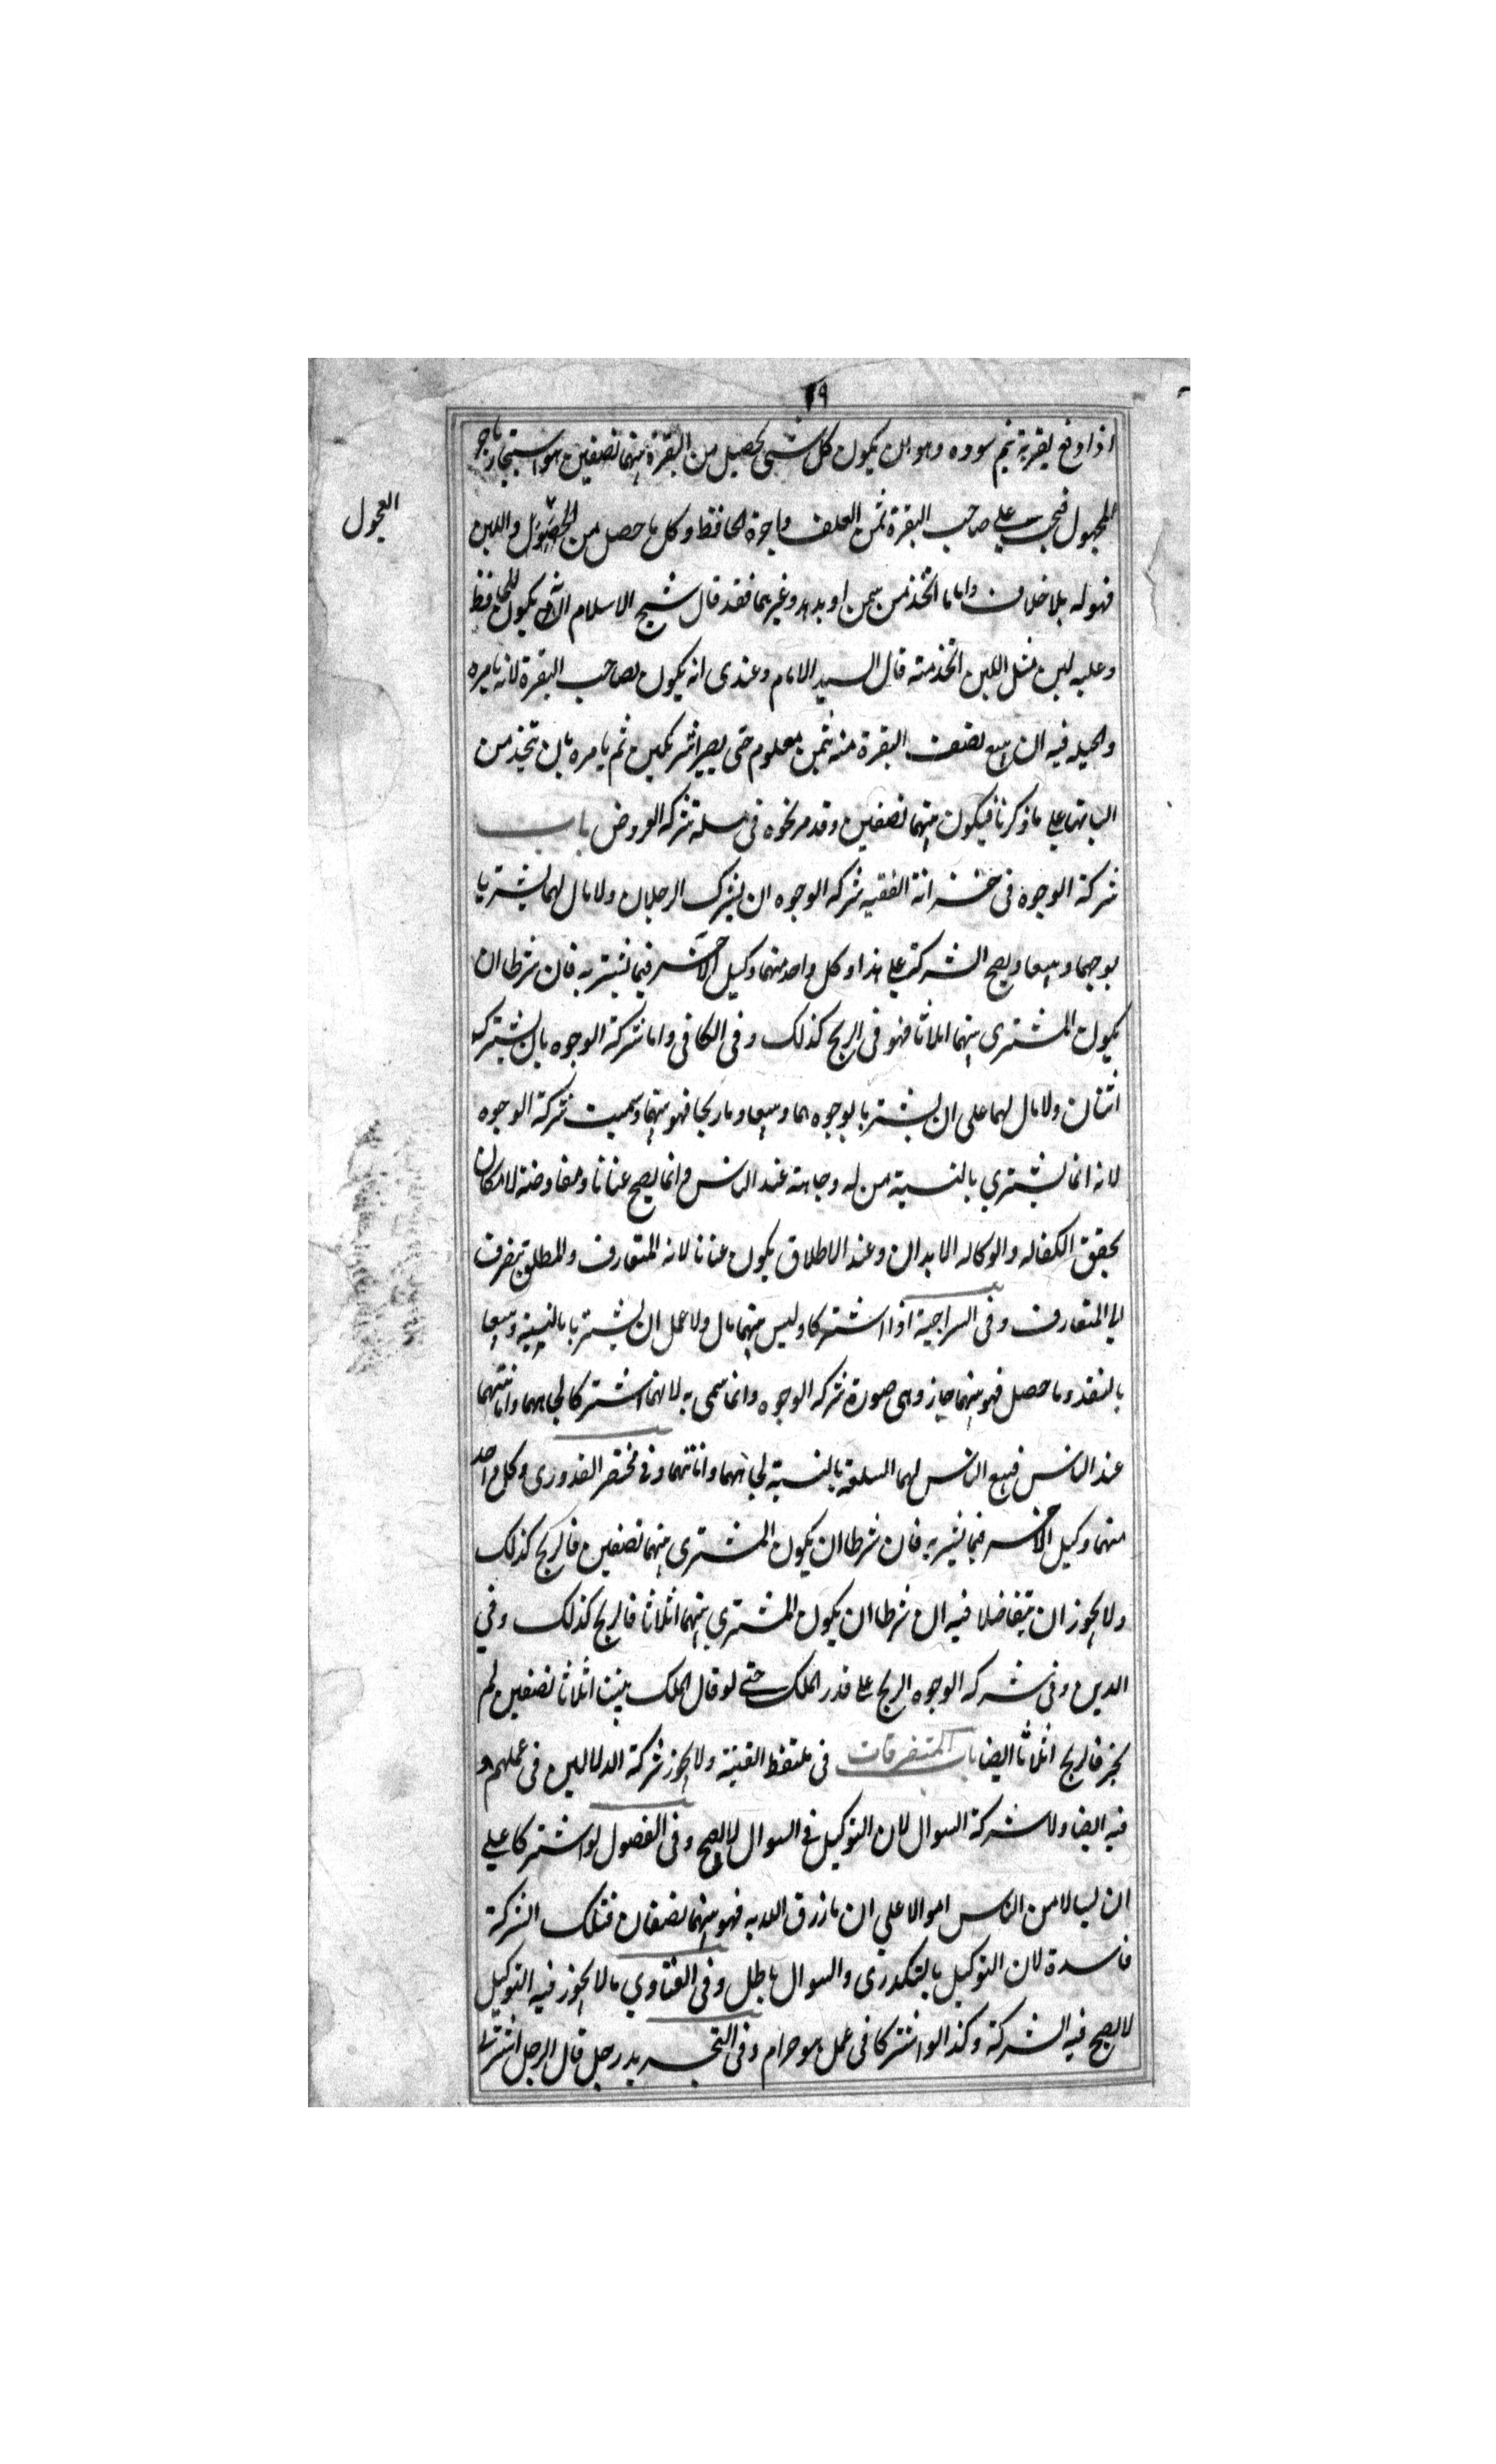 ١٩
اذا دفع بقرته بنيم سوده وهو ان يكون كل شئ يحصل من البقرة بينهما نصفين هو استيجار باجر
المجهول فيجب على صاحب البقرة ثمن العلف واجرة الحافظ وكل ما حصل من واللبن
العجول
فهو له بلا خلاف واما ما اتخذ من سمن او وغيرهما فقد قال شيخ الاسلام انه يكون للحافظ
وعليه لبن مثل اللبن اتخذ منه قال السيد الامام وعندى انه يكون لصاحب البقرة لانه بامره
والحيله فيه ان يبيع نصف البقرة منه بثمن معلوم حتى يصيرا شريكين ثم يامره بان يتخذ من
البانها على ما ذكرنا فيكون بينهما نصفين وقد مر نحوه فى مسئلة شركه العروض باب
شركة الوجوه فى خزانة الفقيه شركه الوجوه ان يشترك الرجلان ولا مال لهما يشتريا
بوجههما ويبيعا ويصح الشركة على هذا وكل واحد منهما وكيل الآخر فيما يشتريه فان شرطا ان
يكون المشترى بينهما اثلاثا فهو فى الربح كذلك وفى الكافى واما شركة الوجوه بان يشترك
اثنان ولا مال لهما على ان يشتريا بوجوههما ويبيعا وما ربحا فهو بينهما وسميت شركة الوجوه
لانه انما يشتري بالنسية من له وجاهته عند الناس وانما يصح عنانا ومفاوضة لامكان
تحقق الكفاله والوكاله الابدان وعند الاطلاق يكون عنانا لانه المتعارف والمطلق ينصرف
الى المتعارف وفى السراجية اذا اشتركا وليس بينهما مال ولا عمل ان يشتريا بالنسية ويبيعا
بالنقد وما حصل فهو بينهما جاز وهى صورة شركه الوجوه وانما سمى به لانهما اشتركا بجاههما وامانتهما
عند الناس فبيع الناس لهما السلعة بالنسية لجاههما وامانتهما وفى مختصر القدورى وكل واحد
منهما وكيل الآخر فيما يشتريه فان شرطا ان يكون المشترى بينهما نصفين فالربح كذلك
ولا يجوز ان يتفاضلا فيه ان شرطا ان يكون المشتري بينهما اثلاثا فالربح كذلك وفي
الدين وفى شركه الوجوه الربح على قدر الملك حتى لو قال الملك بيننا اثلاثا نصفين لم
يجز فالربح اثلاثا ايضا باب المتفرقات فى ملتقط القنية ولا يجوز شركة الدلالين فى عملهم و
فيه ايضا ولا شركة السوال لان التوكيل فى السوال لا يصح وفى الفصول لو اشتركا على
ان يسالا من الناس اموالا علي ان ما رزق الله به فهو بينهما نصفان فتلك الشركة
فاسدة لان التوكيل بالتكدى والسوال باطل وفى الفتاوي ما لا يجوز فيه التوكيل
لا يصح فيه الشركة وكذا لو اشتركا فى عمل هو حرام وفى التجريد رجل قال الرجل اشتريت